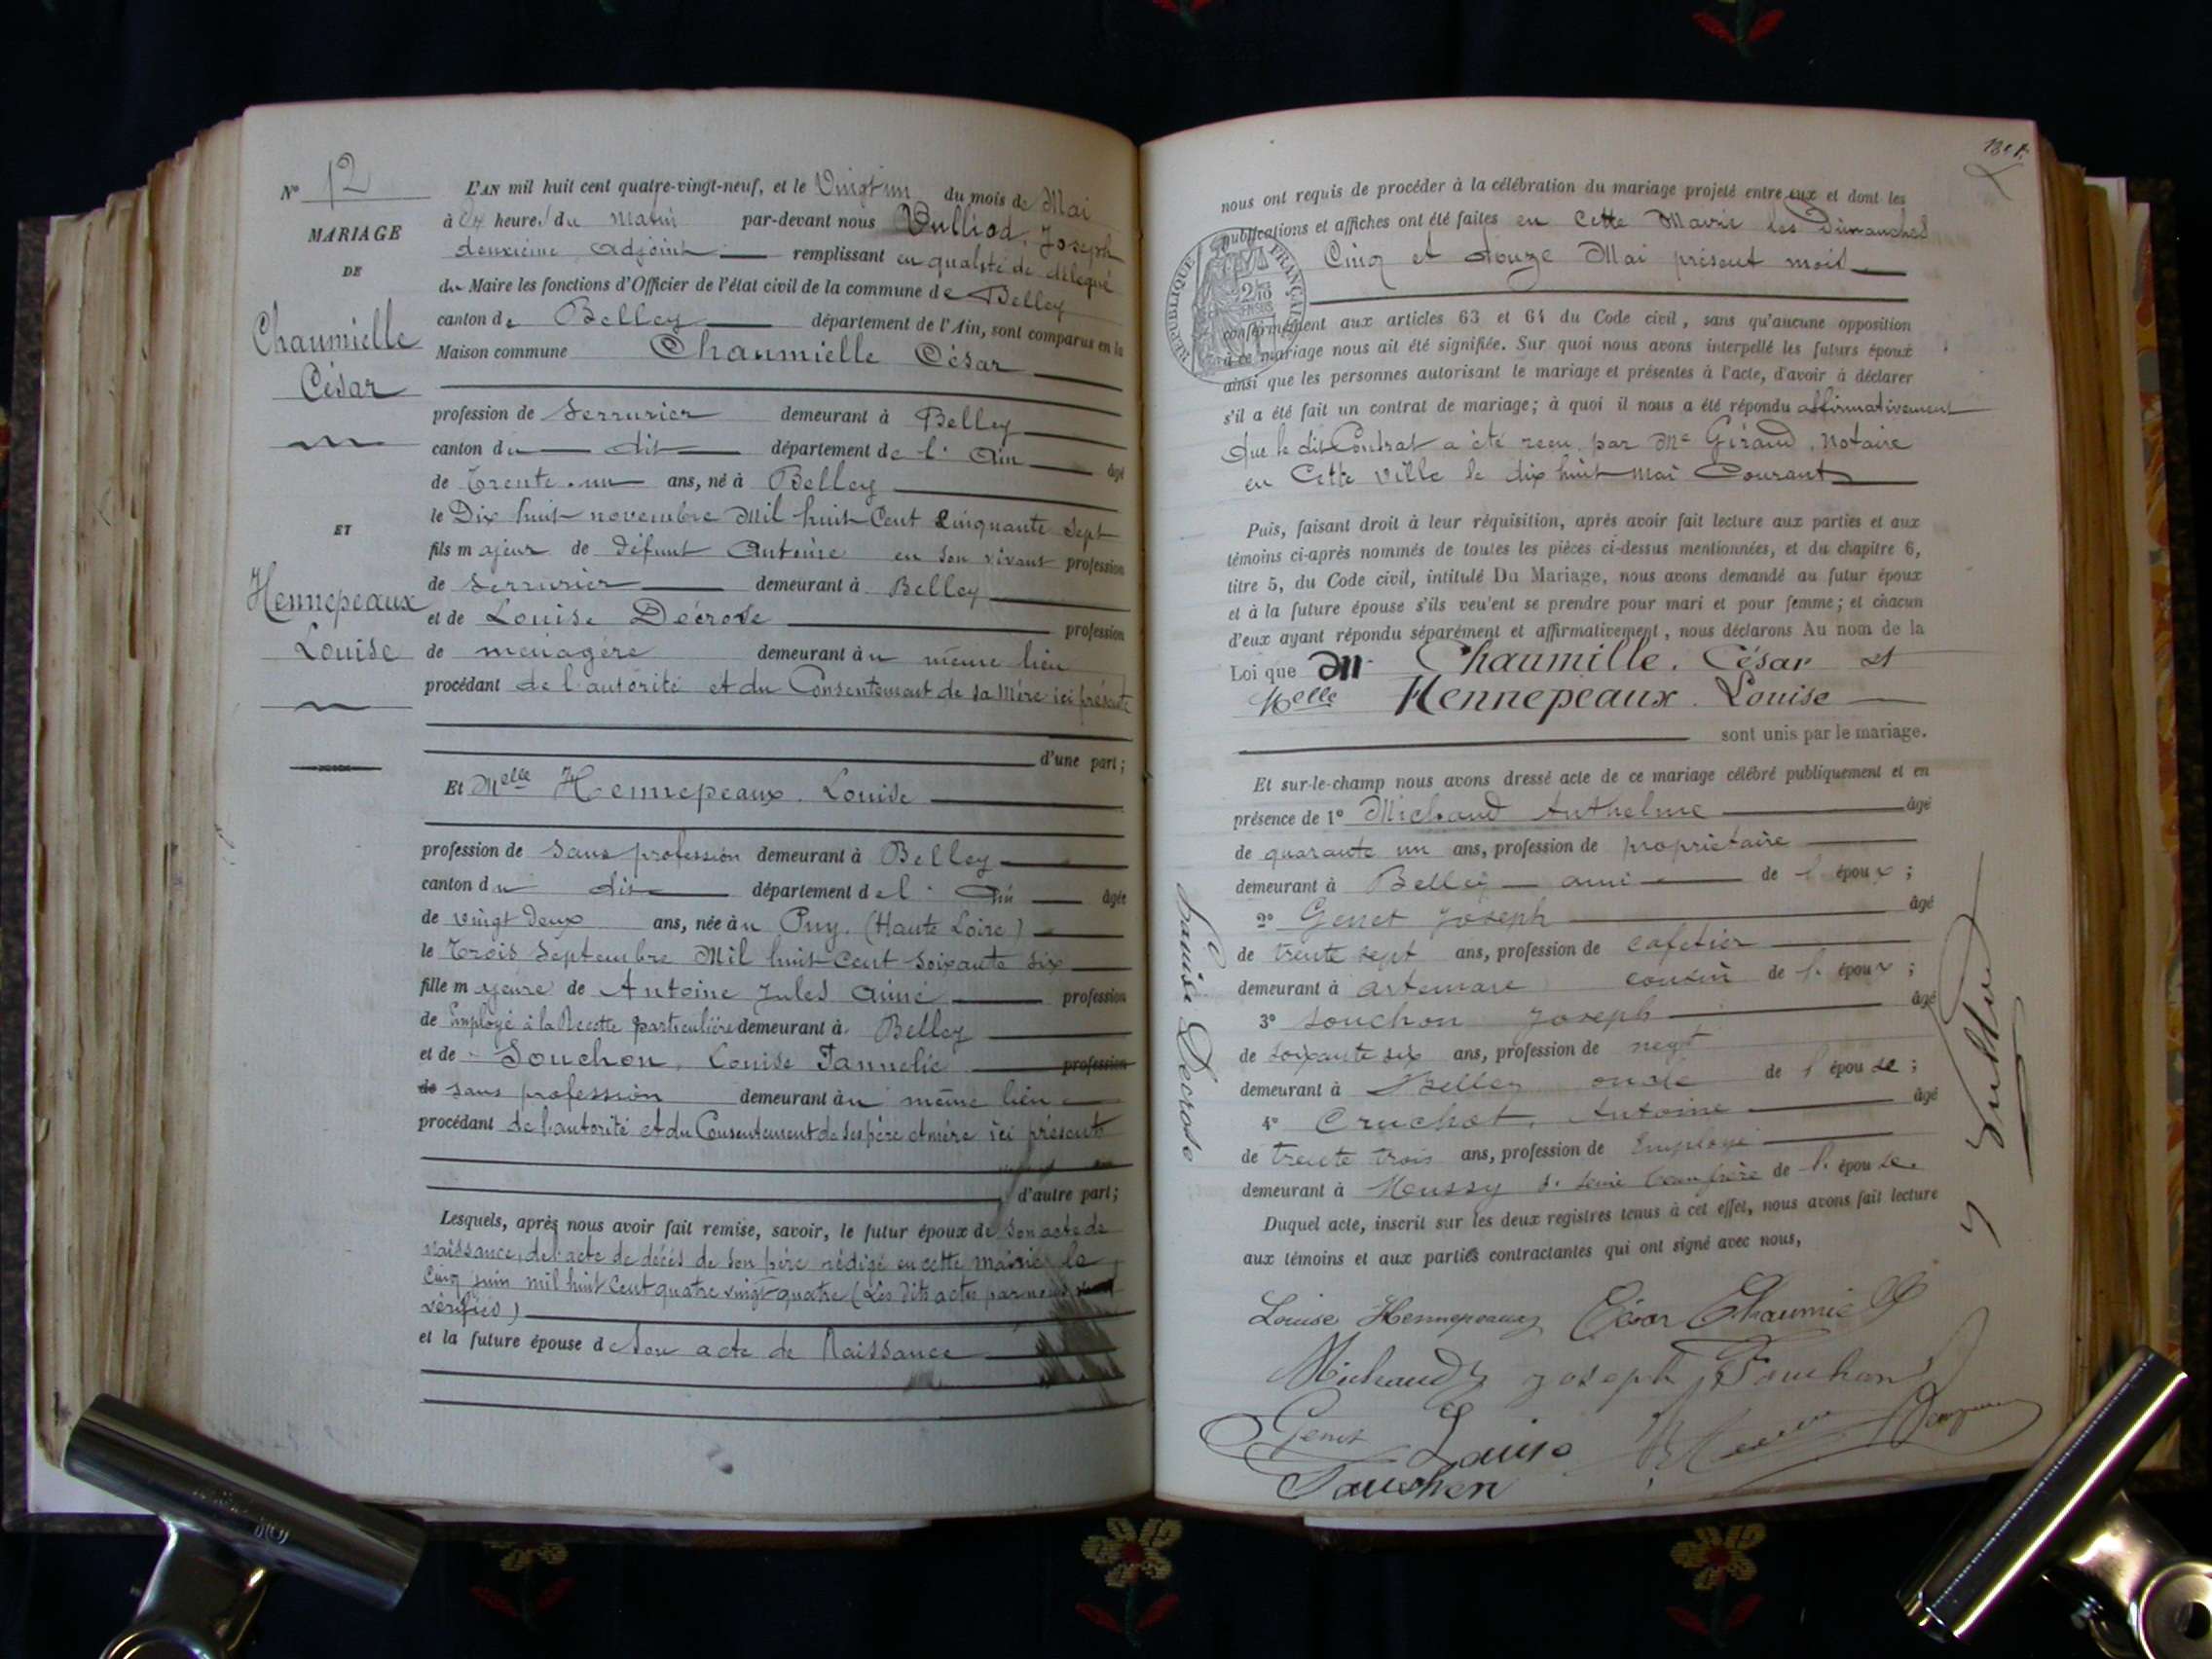 N° 12
MARIAGE
DE
Chaumielle
César
ET
Hennepeaux
Louise
L'AN mil huit cent quatre-vingt-neuf, et le Vingt un du mois de Mai
à heures du matin par-devant nous Vulliod, Joseph
deuxième adjoint remplissant en qualité de délégué
du Maire les fonctions d'Officier de l'état civil de la commune de Belley
canton de Belley département de l'Ain, sont comparus en la
Maison commune Chaumielle César
profession de Serrurier demeurant à Belley
canton du dit département de l'Ain âgé
de Trente un ans, né à Belley
le Dix huit novembre Mil huit Cent Cinquante Sept
fils majeur de défunt Antoine en son vivant profession
de Serrurier demeurant à Belley
et de Louise Décrose profession
de ménagère demeurant au même lieu
procédant de l'autorité et du Consentement de sa Mère ici présente
d'une part;
Et Melle Hennepeaux. Louise
profession de Sans profession demeurant à Belley
canton du dit département de l'Ain âgée
de vingt Deux ans, née au Puy. (Haute Loire)
le Trois Septembre Mil huit Cent Soixante Six
fille majeure de Antoine Jules Aimé profession
de Employé à la Recette particulière demeurant à Belley
et de Souchon, Louise Fannélie profession
de sans profession demeurant au même lieu
procédant de l'autorité et du Consentement de ses père et mère ici présents
d'autre part;
Lesquels, après nous avoir fait remise, savoir, le futur époux de Son acte de
naissance, de l'acte de décès de son père rédigé en cette mairie le
Cinq juin mil huit Cent quatre vingt quatre (Les dits actes par nous
vérifiés)
et la future épouse de Son acte de Naissance
nous ont requis de procéder à la célébration du mariage projeté entre eux et dont les
publications et affiches ont été faites en Cette Mairie les Dimanches
Cinq et douze Mai présent mois
RÉPUBLIQUE FRANÇAISE
conformément aux articles 63 et 64 du Code civil, sans qu'aucune opposition
à ce mariage nous ait été signifiée. Sur quoi nous avons interpellé les futurs époux
ainsi que les personnes autorisant le mariage et présentes à l'acte, d'avoir à déclarer
s'il a été fait un contrat de mariage; à quoi il nous a été répondu affirmativement
Que le dit Contrat a été reçu par Me Giraud, Notaire
en Cette Ville le dix huit mai Courant
Puis, faisant droit à leur réquisition, après avoir fait lecture aux parties et aux
témoins ci-après nommés de toutes les pièces ci-dessus mentionnées, et du chapitre 6,
titre 5, du Code civil, intitulé Du Mariage, nous avons demandé au futur époux
et à la future épouse s'ils veu'ent se prendre pour mari et pour femme; et chacun
d'eux ayant répondu séparément et affirmativement, nous déclarons Au nom de la
Loi que M. Chaumille. César et
Melle Hennepeaux. Louise
sont unis par le mariage.
Et sur-le-champ nous avons dressé acte de ce mariage célébré publiquement et en
présence de 1° Michaud Anthelme âgé
de quarante un ans, profession de propriétaire
demeurant à Belley ami de l'époux;
2° Genet Joseph âgé
de trente sept ans, profession de cafetier
demeurant à Artemare cousin de l'époux;
3° Souchon Joseph âgé
de soixante six ans, profession de negt
demeurant à Belley oncle de l'épouse;
4° Cruchet, Antoine âgé
de trente trois ans, profession de Employé
demeurant à beau frère de l'épouse.
Duquel acte, inscrit sur les deux registres tenus à cet effet, nous avons fait lecture
aux témoins et aux parties contractantes qui ont signé avec nous,
Louise Hennepeaux César Chaumielle
Michaud Joseph Souchon
Genet Louise
Souchon
Louise Decrose
J Vulliod